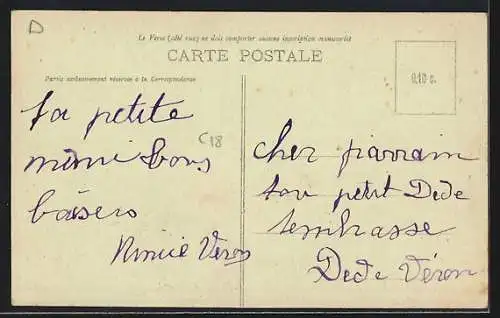 D
Le Verso (côté vue) ne doit comporter aucune inscription manuscrite
CARTE POSTALE
Partie exclusivement réservée à la Correspondance
0.10 c.
ta petite
mimi bons
baisers
Mimie Véron
C18
cher parrain
ton petit Dede
tembrasse
Dede Véron